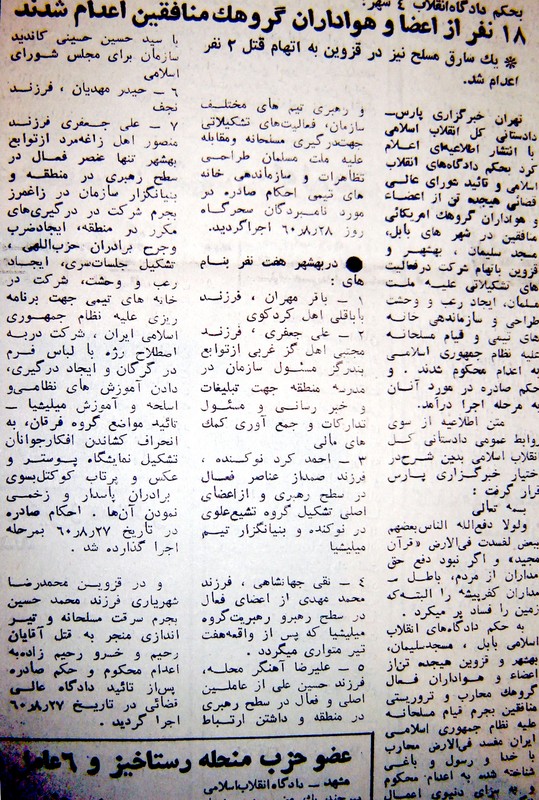 بحکم دادگاه انقلاب ۴ شهر:
۱۸ نفر از اعضا و هواداران گروهك منافقین اعدام شدند
* یك سارق مسلح نیز در قزوین به اتهام قتل ۲ نفر
اعدام شد.
تهران خبرگزاری پارس_
دادستانی کل انقلاب اسلامی
با انتشار اطلاعیه‌ای اعلام
کرد بحکم دادگاه‌های انقلاب
اسلامی و تائید شورای عالی
قضائی هیجده تن از اعضاء
و هواداران گروهك امریکائی
منافقین در شهر های بابل،
مسجد سلیمان ، بهشهر و
قزوین باتهام شرکت درفعالیت
های تشکیلاتی علیه ملت
مسلمان، ایجاد رعب و وحشت
طراحی و سازماندهی خانه
های تیمی و قیام مسلحانه
علیه نظام جمهوری اسلامی
به اعدام محکوم شدند . و
حکم صادره در مورد آنان
به مرحله اجرا درآمد.
متن اطلاعیه از سوی
روابط عمومی دادستانی کل
انقلاب اسلامی بدین شرح‌در
اختیار خبرگزاری پارس
قرار گرفت :
بسمه تعالی
ولولا دفع‌الله الناس‌بعضهم
ببعض لفسدت فی‌الارض «قرآن
مجید» و اگر نبود دفع حق
مداران از مردم، باطل _
مداران کفرپیشه را البته‌که
زمین را فساد پر میکرد .
به حکم دادگاه‌های انقلاب
اسلامی بابل ، مسجدسلیمان،
بهشهر و قزوین هیجده تن‌از
اعضاء و هواداران فعال
گروهك محارب و تروریستی
منافقین بجرم قیام مسلحانه
علیه نظام جمهوری اسلامی
ایران مفسد فی‌الارض محارب
با خدا و رسول و باغی
شناخته شده به اعدام محکوم
و به سزای دنیوی اعمال
و رهبری تیم های مختلف
سازمان، فعالیت‌های تشکیلاتی
جهت‌درگیری مسلحانه ومقابله
علیه ملت مسلمان طراحی
تظاهرات و سازماندهی خانه
های تیمی احکام صادره در
مورد نامبردگان سحرگاه
روز ۶۰٫۸٫۲۸ اجراگردید.
● دربهشهر هفت نفر بنام
های :
۱ _ باقر مهران ، فرزند
باباقلی اهل کردکوی
۲ _ علی جعفری ، فرزند
مجتبی اهل گز غربی ازتوابع
بندرگز مسئول سازمان در
مدرسه منطقه جهت تبلیغات
و خبر رسانی و مسئول
تدارکات و جمع آوری کمك
های مالی
۳ _ احمد کرد نوکنده ،
فرزند صمداز عناصر فعال
در سطح رهبری و ازاعضای
اصلی تشکیل گروه تشیع‌علوی
در نوکنده و بنیانگزار تیم
میلیشیا
۴ _ نقی جهانشاهی ، فرزند
محمد مهدی از اعضای فعال
در سطح رهبرو رهبریت‌گروه
میلیشیا که پس از واقعه‌هفت
تیر متواری میگردد .
۵ _ علیرضا آهنگر محله،
فرزند حسین علی از عاملین
اصلی و فعال در سطح رهبری
در منطقه و داشتن ارتباط
با سید حسین حسینی کاندید
سازمان برای مجلس شورای
اسلامی
۶ _ حیدر مهدیان ، فرزند
نجف
۷ _ علی جعفری فرزند
منصور اهل زاغمرد ازتوابع
بهشهر تنها عنصر فعال در
سطح رهبری در منطقه و
بنیانگزار سازمان در زاغمرز
بجرم شرکت در درگیری‌های
مکرر در منطقه، ایجادضرب
وجرح برادران حزب‌اللهی ،
تشکیل جلسات‌سری، ایجاد
رعب و وحشت، شرکت در
خانه های تیمی جهت برنامه
ریزی علیه نظام جمهوری
اسلامی ایران ، شرکت دربه
اصطلاح رژه با لباس فرم
در گرگان و ایجاد درگیری،
دادن آموزش های نظامی‌و
اسلحه و آموزش میلیشیا _
تائید مواضع گروه فرقان، به
انحراف کشاندن افکارجوانان
تشکیل نمایشگاه پوستر و
عکس و پرتاب کوکتل‌بسوی
برادران پاسدار و زخمی
نمودن آن‌ها . احکام صادره
در تاریخ ۶۰٫۸٫۲۷ بمرحله
اجرا گذارده شد .
و در قزوین محمدرضا
شهریاری فرزند محمد حسین
بجرم سرقت مسلحانه و تیر
اندازی منجر به قتل آقایان
رحیم و خسرو رحیم زاده‌به
اعدام محکوم و حکم صادره
پس‌از تائید دادگاه عالی
قضائی در تاریخ ۶۰٫۸٫۲۷
اجرا گردید .
عضو حزب منحله رستاخیز و ۶ عامل
مشهد _ دادگاه انقلاب‌اسلامی